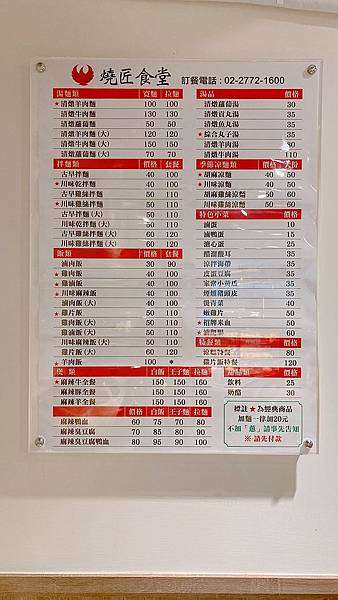 燒匠食堂 訂餐電話：02-2772-1600
湯麵類 寬麵 拉麵
★清燉羊肉麵 100 100
清燉牛肉麵 130 130
清燉蘿蔔麵 50 50
★清燉羊肉麵(大) 120 120
清燉牛肉麵(大) 150 150
清燉蘿蔔麵(大) 70 70
拌麵類 價格 套餐
古早拌麵 40 100
★川味乾拌麵 40 100
★川味雞絲拌麵 50 110
古早雞絲拌麵 50 110
古早拌麵(大) 50 110
川味乾拌麵(大) 50 110
★川味雞絲拌麵(大) 60 120
古早雞絲拌麵(大) 60 120
飯類 價格 套餐
滷肉飯 30 90
★雞肉飯 40 100
雞片飯 40 100
★川味麻辣飯 40 100
滷肉飯(大) 40 100
★雞肉飯(大) 50 110
雞片飯(大) 50 110
川味麻辣飯(大) 50 110
雞片飯(大) 60 120
★羊肉飯 100 *
煲類 白飯 王子麵 拉麵
★麻辣牛全餐 150 150 160
麻辣豚全餐 150 150 160
麻辣羊全餐 150 150 160
價格 白飯 王子麵 拉麵
麻辣鴨血 60 75 70 80
麻辣臭豆腐 70 85 80 90
麻辣臭豆腐鴨血 80 95 90 100
湯品 價格
清燉蘿蔔湯 30
清燉貢丸湯 35
清燉魚丸湯 35
★綜合丸子湯 35
清燉羊肉湯 80
清燉牛肉湯 110
季節涼麵類 價格
★胡麻涼麵 40 50
★川味涼麵 40 50
胡麻雞絲涼麵 50 60
川味雞絲涼麵 50 60
特色小菜 價格
滷蛋 10
滷鴨蛋 15
溏心蛋 25
醋溜酸耳 35
涼拌海帶 35
皮蛋豆腐 35
家常小黃瓜 35
煙燻豬頭皮 35
燙青菜 40
嫩雞片 50
★招牌米血 50
特餐類 價格
涼麵特餐 80
雞片飯特餐 120
價格
飲料 25
奶酪 30
標註★為經典商品
加麵一律加20元
不加「蔥」請事先告知
※請先付款